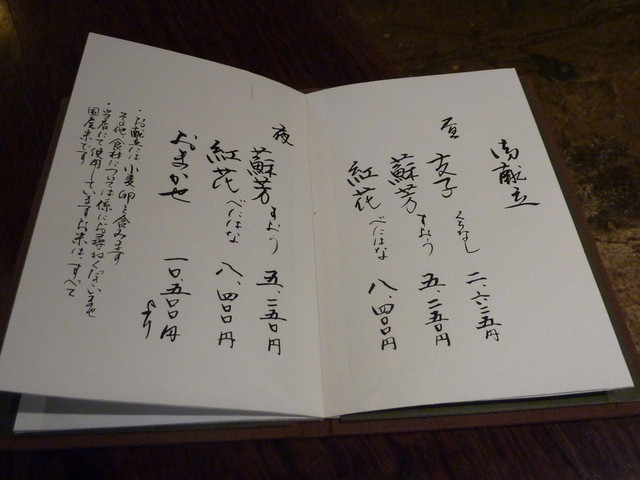 御献立
昼
支子 くちなし 二、六二五円
蘇芳 すおう 五、二五〇円
紅花 べにはな 八、四〇〇円
夜
蘇芳 すおう 五、二五〇円
紅花 べにはな 八、四〇〇円
おまかせ 一〇、五〇〇円より
・お献立には小麦卵を含みます
その他食材については係にお尋ねくださいませ
・当店にて使用していますお米はすべて
国産米です